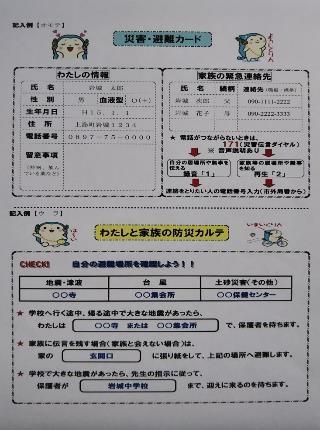 記入例【オモテ】
災害・避難カード
わたしの情報
氏 名 岩城 太郎
性 別 男 血液型 O(+)
生年月日 H15.1.1
住 所 上島町岩城1234
電話番号 0897-75-0000
留意事項
家族の緊急連絡先
氏 名 続柄 連絡先
岩城 次郎 父 090-1111-2222
岩城 花子 母 090-2222-3333
★ 電話がつながらないときは、
171(災害伝言ダイヤル)
※ 音声説明あり
自分の居場所や無事を伝える
録音「1」
家族等の居場所や無事を知る
再生「2」
連絡をとりたい人の電話番号入力(市外局番から)
記入例【ウ ラ】
わたしと家族の防災カルテ
CHECK! 自分の避難場所を確認しよう!!
地震・津波 台 風 土砂災害(その他)
○○寺 ○○集会所 ○○保健センター
★ 学校へ行く途中、帰る途中で大きな地震があったら、
わたしは ○○寺 または ○○集会所 で、保護者を待ちます。
★ 家族に伝言を残す場合(家族と会えない場合)は、
家の 玄関口 に張り紙をして、上記の場所へ避難します。
★ 学校で大きな地震があったら、先生の指示に従って、
保護者が 岩城中学校 まで、迎えに来るのを待ちます。